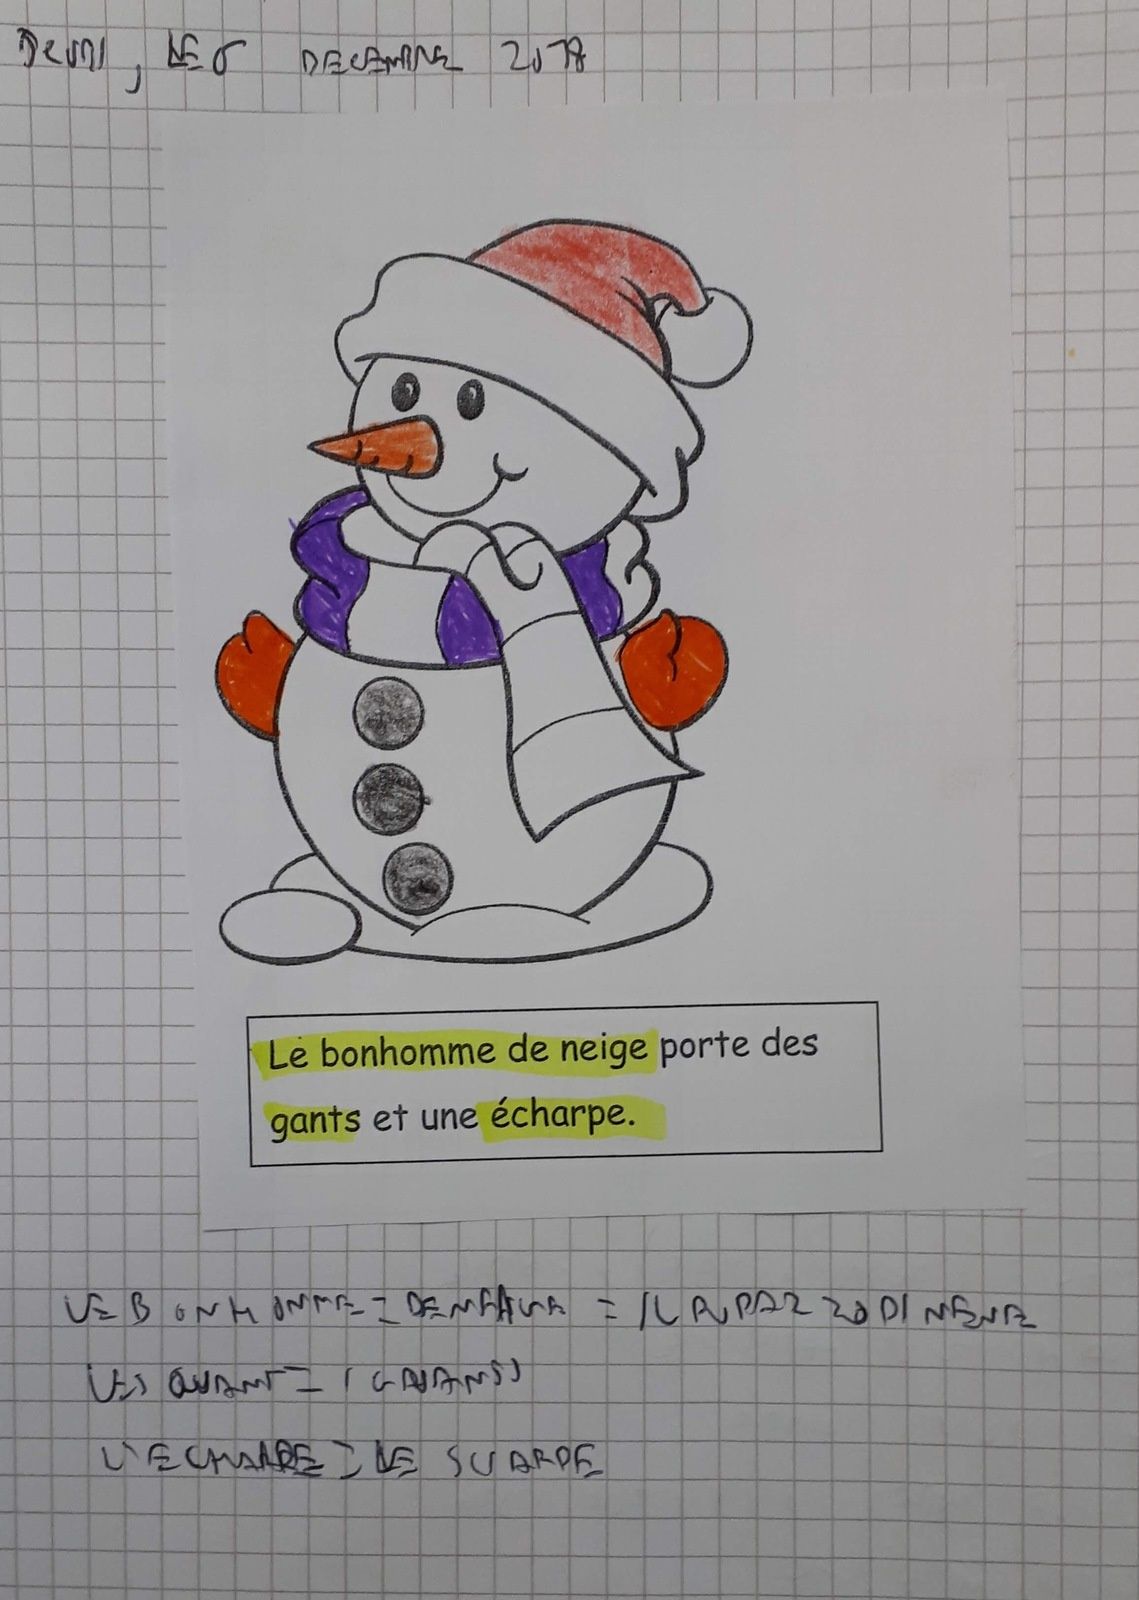 DECEMBRE 2018
Le bonhomme de neige porte des
gants et une écharpe.
LE BONHOMME = DE = IL PUPAZZO DI NEVE
LES =
L'ECHARPE = LE SCIARPE